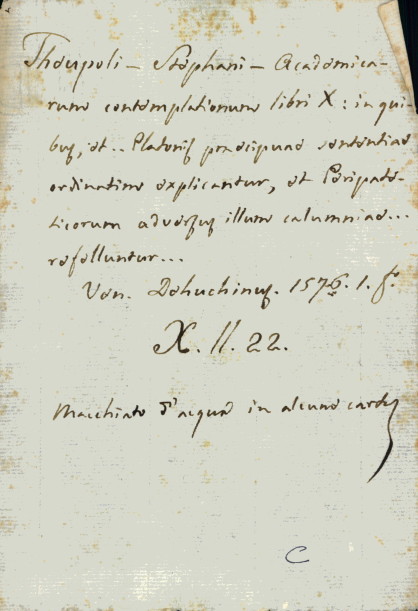 Theupoli - Stephani - Academica-
rum contemplationum libri X: in qui-
bus, et.. Platonis praecipuae sententiae
ordinatim explicantur, et Peripate-
ticorum adversus illum calumniae...
refelluntur...
Ven. Dehuchinus. 1576. 1. f.o
X. II. 22.
Macchiato d'acqua in alcune carte
C